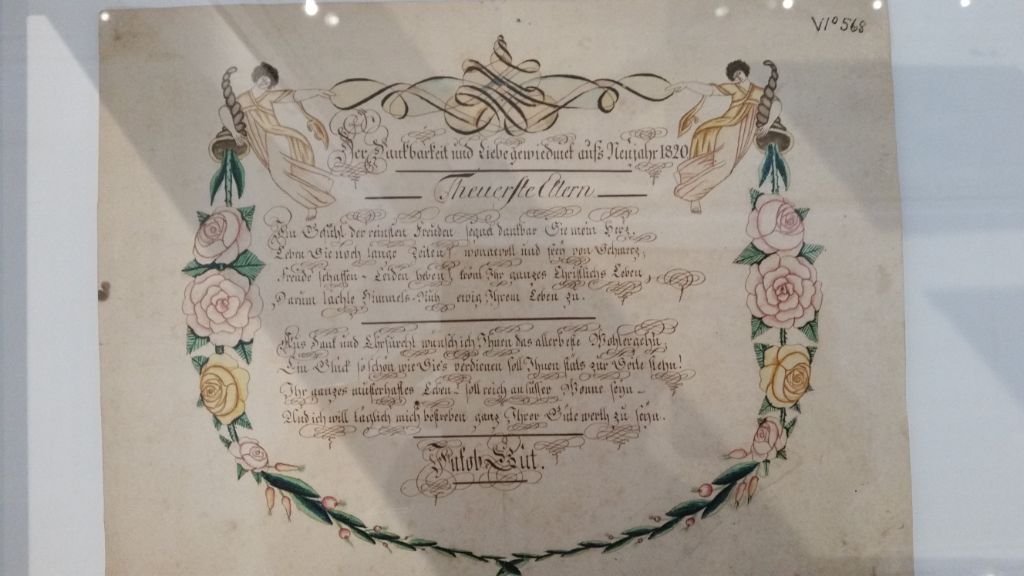 VIº 568
Der Dankbarkeit und Liebe gewiedmet aufs Neujahr 1820
Theuerste Eltern
Ein Gefühl der reinsten Freuden segnet dankbar Sie mein Herz.
Leben Sie noch lange Zeiten wonnvoll und frey von Schmerz,
Freude schaffen - Leiden heben Ihr ganzes Christlichs Leben,
Darum lächle Himmels-Ruh ewig Ihrem Leben zu.
Aus Dank und Ehrfurcht wünsch ich Ihnen das allerbeste Wohlergehn,
Ein Glück so schön wie Sie's verdienen soll Ihnen stäts zur Seite stehn!
Ihr ganzes musterhaftes Leben - soll reich an süsser Wonne seyn -
Und ich will täglich mich bestreben ganz Ihrer Güte werth zu seyn.
Jakob